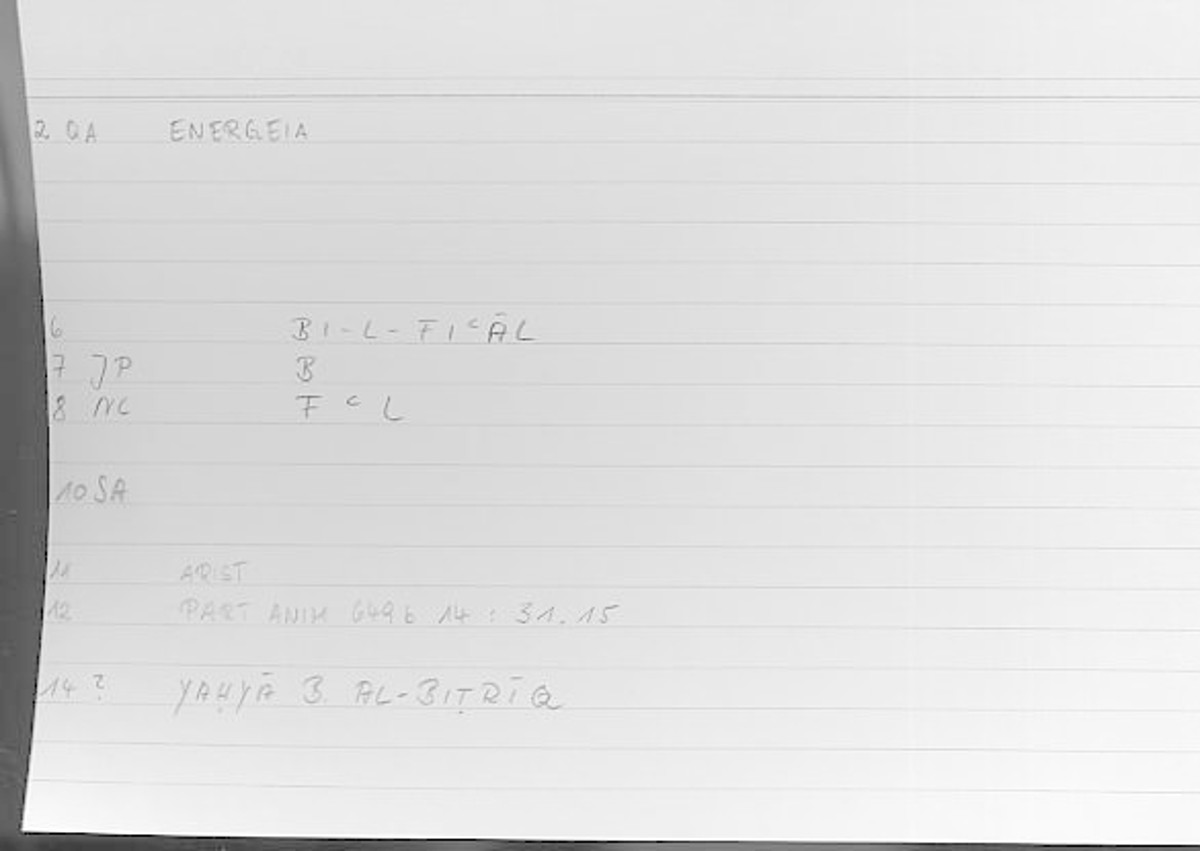 2 QA ENERGEIA
6 BI-L-FIʿĀL
7 JP B
8 NC F ʿ L
10 SA
11 ARIST
12 PART ANIM 649b 14 : 31.15
14 ? YAḤYĀ B. AL-BIṬRĪQ